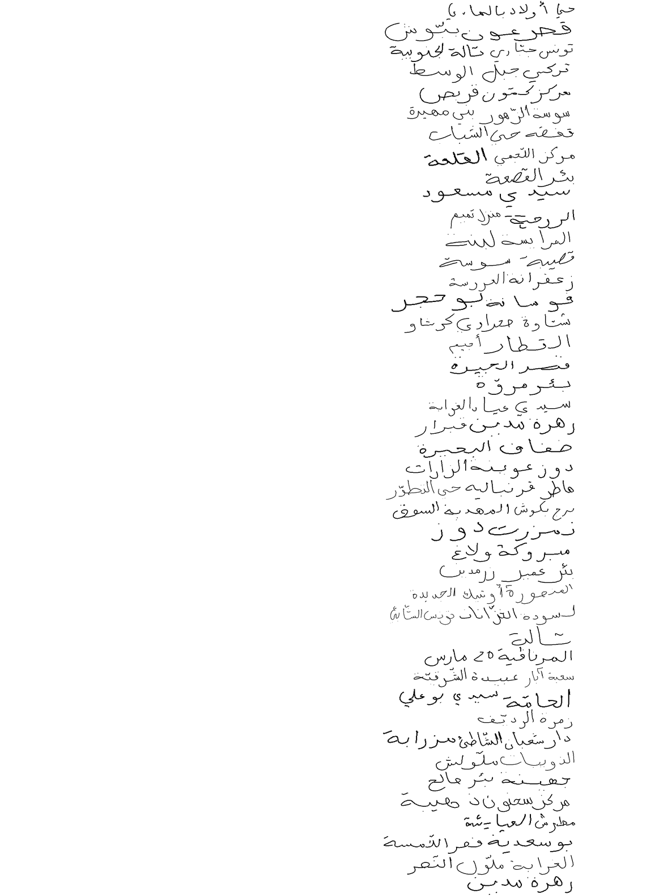 حي أولاد بالهادي
قصر عون بنّوش
تونس حتاري تالة الجنوبية
تركي جبل الوسط
مركز كمّون قريص
سوسة الزهور بني مهيرة
قفصة حي الشباب
مركز اللجمي القلعة
بئر القصعة
سيدي مسعود
الررحية منزل تميم
المرايسة لبنة
قصيبة سوسة
زعفرانة العروسة
قومانة بو حجر
شتاوة صحراوي كوشاو
القطار أميم
قصر الحيرة
بئر مروّة
سيدي عياد العرابة
زهرة مدين قبرار
ضفاف البحيرة
دوز عوينة الزارات
ماطر قرنبالية حي التطوّر
برج بكوش المهدية السوق
تمزرت دوز
مبروكة ولاغ
بئر عمير زرمدين
المنصورة أوتيك الجديدة
لسودة القزّانات تونس الثانية
شالية
المرناقية 20 مارس
سعية آبار عبيدة الشرقيّة
العامّة سيدي بوعلي
زمرة الرديّف
دار شعبان الشّاطئ مزرابة
الذويبات ملّولش
جهينة بئر صالح
مركز سحنون ذهيبة
مطرش العيايشة
بوسعدية قصر اللّمسة
العرابة ملّول النّحر
زهرة مدين